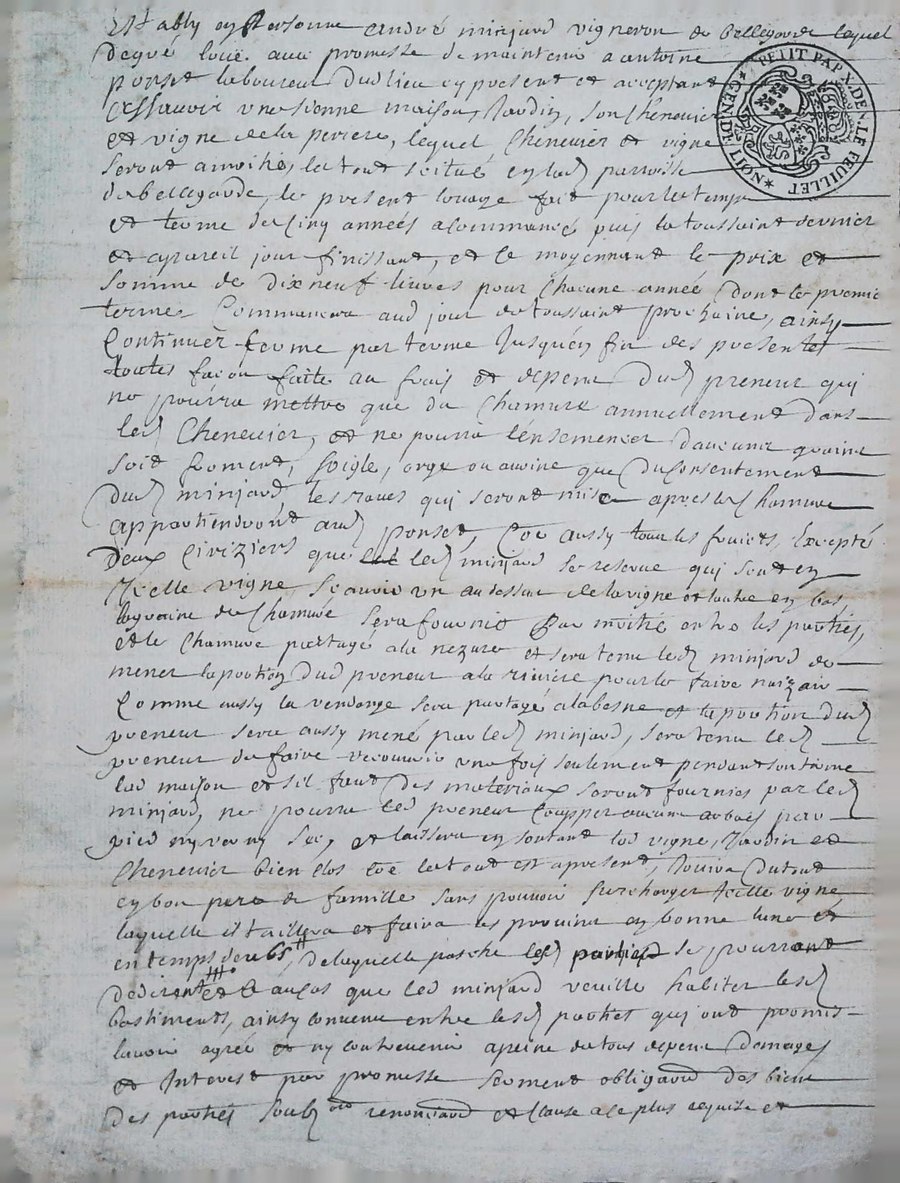 Estably en personne andré minjard vigneron de bellegarde lequel
de gré loüe avec promesse de maintenir a antoine
ponset laboureur dud lieu cy present et acceptant
Cestasavoir une sienne maison, Jardin, son Chenevier
et vigne de la periere, lequel Chenevier et vigne
seront a moitié, le tout scitué en lad parroisse
de bellegarde, le present louage fait pour le temps
et terme de Cinq années a Commancé puis la toussaint dernier
et a pareil jour finissant, et le moyennant le prix et
somme de dix neuf livres pour Chacune année dont le premie
terme Commancera aud jour de toussaint prochaine, ainsy
Continuer terme par terme Jusqu'en fin des presentes
toutes facon faite au frais et depend dud preneur qui
ne pourra mettre que du Chamure annuellement dans
led Chenevier, et ne pourra l'ensemencer d'aucune graine
soit froment, soigle, orge ou avoine que du Consentement
dud minjard, les raves qui seront mise apres le Chamure
appartiendront aud ponset, Coe aussy tous les fruicts, Excepté
deux Ciriziers que led minjard se reserve qui sont en
Icelle vigne, scavoir un au dessus de la vigne et lautre en bas,
la graine de Chamure sera fournie par moitié entre les parties,
et le Chamure partagé a la et sera tenu led minjard de
mener la portion dud preneur a la riviere pour le faire naizair
Comme aussy la vendange sera partagé a la besne et la portion dud
preneur sera aussy mené par led minjard, sera tenu led
preneur de faire recouvrir une fois seulement pendant son terme
lad maison et s'il faut des materiaux seront fournies par led
minjard, ne pourra led preneur Coupper aucuns arbres par
pied ny verd ny sec, et laissera en sortant lad vigne, Jardin et
Chenevier bien Clos Coe le tout est apresent, Jouira du tout
en bon pere de famille sans pouvoir surcharger Icelle vigne,
laquelle il taillera et faira les provins en bonne lune et
en temps deu 65, de laquelle pasche lesd parties se pourront
et au cas que led minjard veuille habiter lesd
bastiments, ainsy Convenu entre lesd parties qui ont promis
lavoir agreé et ny contrevenir a peine de tous depend Domages
et Interest par promesse serment obligaon des biens
des parties soubzon renonciaon et Clause a le plus requise et
GEN. DE. LION PETIT PAP. X. DE. LE FEUILLET NOT